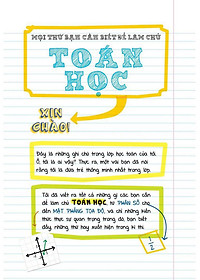 MỌI THỨ BẠN CẦN BIẾT ĐỂ LÀM CHỦ
TOÁN
HỌC
XIN
CHÀO!
Đây là những ghi chú trong lớp học toán của tôi.
Ồ, tôi là ai vậy? Thực ra, một vài bạn đã nói
rằng tôi là đứa trẻ thông minh nhất trong lớp.
Tôi đã viết ra tất cả những gì các bạn cần
để làm chủ TOÁN HỌC, từ PHÂN SỐ cho
đến MẶT PHẲNG TỌA ĐỘ, và chỉ những kiến
thức thực sự quan trọng trong đó, bạn biết
đấy, những thứ hay xuất hiện trong kì thi.
1/2